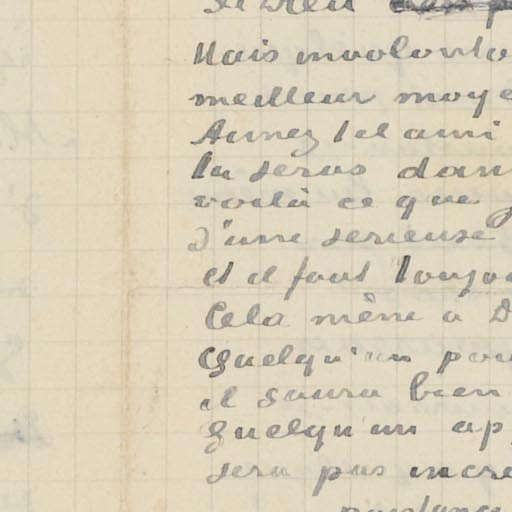 Si Dieu
Mais involonta
meilleur moye
Aimez l'el ami
tu seras dan
voilà ce que
d'une serieuse
et il faut toujou
Cela mène a D
Quelqu'un pou
il saura bien
quelqu'un ap
sera pas incre